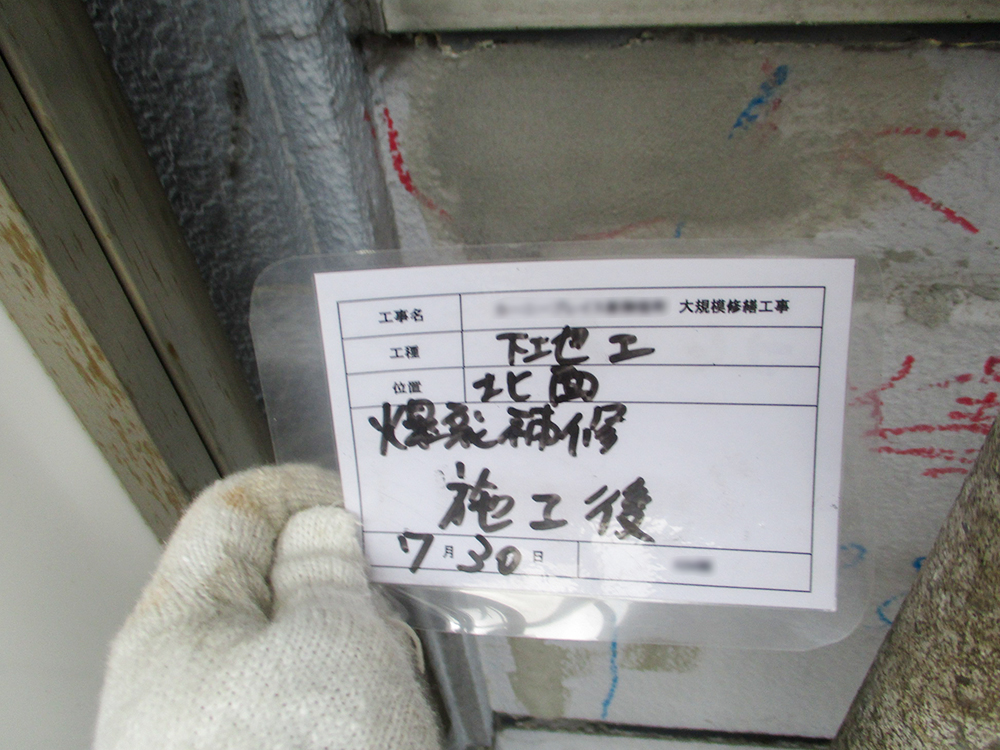 工事名 大規模修繕工事
工種 下地工
位置 北面
爆裂補修
施工後
7月30日